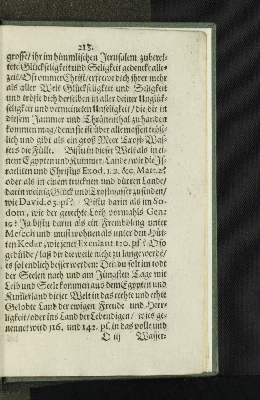 213.
grosse/ ihr im himmlischen Jerusalem zuberei-
tete Glückseligkeit und Seligkeit gedencke alle-
zeit/ O frommer Christ/ erfrewe dich ihrer mehr
als aller Welt Glückseligkeit und Seligkeit
und tröste dich derselben in aller deiner Unglück-
seligkeit und vermeineten Unseligkeit/ die dir in
diesem Jammer und Threnenthal zu handen
kommen mag/ denn sie ist über alle massen tröst-
lich und gibt als ein groß Meer Trost-Was-
sers die Fülle. Bistu in dieser Welt als in ei-
nem Egypten und Kummer-Lande/ wie die Is-
raeliten und Christus Exod. 1. 2. &c. Matt. 2?
oder als in einem trucknen und dürren Lande/
darin wenig Glück und Trostwasser zu finden/
wie David. 63. ps? Bistu darin als im So-
dom, wie der gerechte Loth vormahls Gen:
19? Ja bistu darin als ein Frembdling unter
Mesech und must wohnen als unter den Hüt-
ten Kedar/ wie jener Exulant 120. ps? O so
gedulde/ laß dir derweile nicht zu lange werde/
es sol endlich besser werden: Den du solt im todt
der Seelen nach und am Jüngsten Tage mit
Leib und Seele kommen aus dem Egypten und
Kum̃erland dieser Welt in das rechte und echte
Gelobte Land der ewigen Freude und Herr-
ligkeit/ oder ins Land der Lebendigen/ wie es ge-
nennet wird 116. und 142. ps. in das volle und
O iij Wasser-